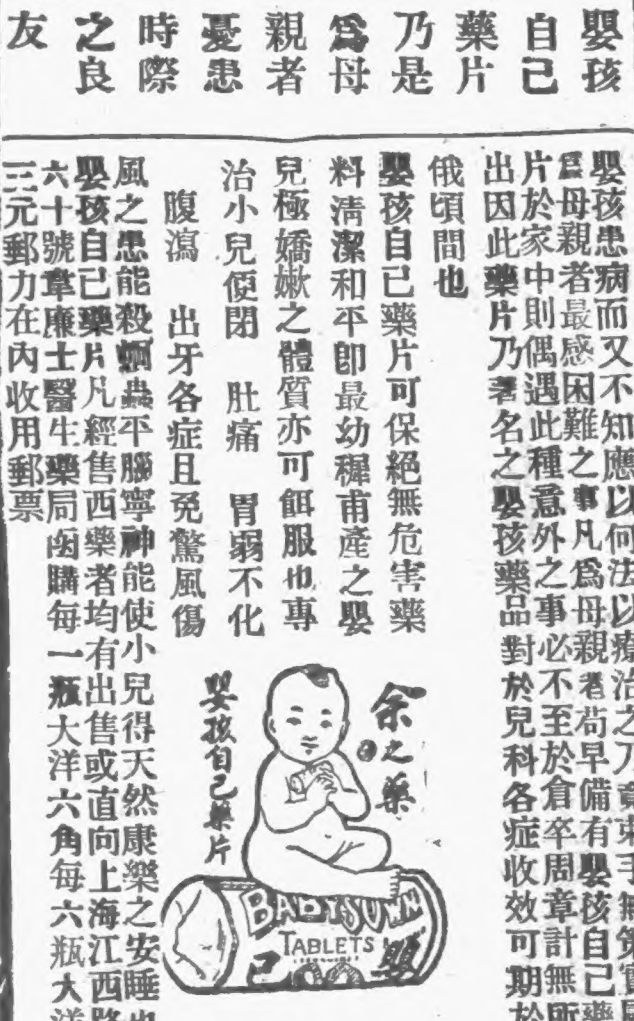 嬰孩
自己
藥片
乃是
爲母
親者
憂患
時際
之良
友
嬰孩患病而又不知應以何法以療治之乃竟束手無策實
爲母親者最感困難之事凡爲母親者苟早備有嬰孩自己藥
片於家中則偶遇此種意外之事必不至於倉卒周章計無所
出因此藥片乃著名之嬰孩藥品對於兒科各症收效可期於
俄頃間也
嬰孩自己藥片可保絕無危害藥
料清潔和平卽最幼穉甫產之嬰
兒極嬌嫩之體質亦可餌服也專
治小兒便閉 肚痛 胃弱不化
腹瀉 出牙各症且免驚風傷
風之患能殺蛔蟲平腦寧神能使小兒得天然康樂之安睡也
嬰孩自己藥片凡經售西藥者均有出售或直向上海江西路
六十號韋廉士醫生藥局函購每一瓶大洋六角每六瓶大洋
三元郵力在內收用郵票
余之藥
嬰孩自己藥片
BABY'S OWN
TABLETS
嬰
己